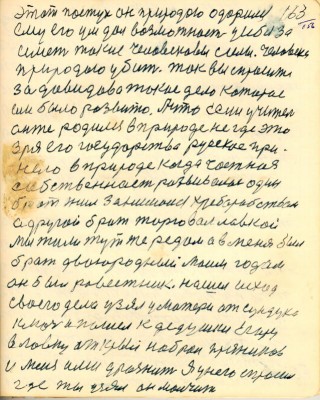 163
этот постух он природою одорили
ему его ум дал возможност
имет такие человеком силы. человека
природою убит. так вы спросите
за давидова такое дело которае
им было розвито. А то если учител
а не родилис в природе не где это
зря его государства руское при-
нело в природе когда частная
собственност развивалас один
брат жил занимался хребозобством
а другой брат торговал лавкой
мы жили тут же редом а в меня был
брат двоюродный моим годам
он был ровестник. нашел исход
своего дела узял у матери от сундука
ключ и пошел к дедушки Егору
в лавку открыл набрал пряников
и меня ими дразнит Я у него спросил
где ты узял он молчит